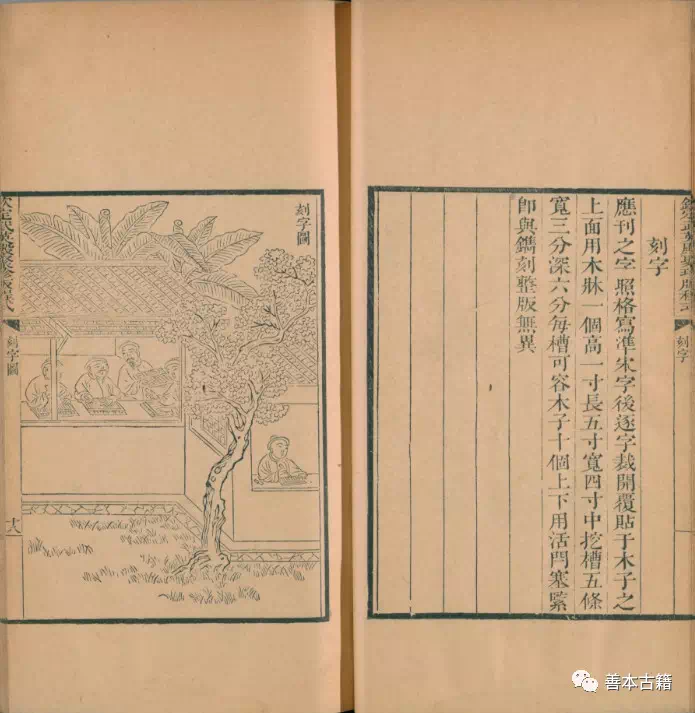 欽定武英殿聚珍版程式
刻字
刻字
應刊之字照格寫準宋字後逐字裁開覆貼于木子之
上面用木牀一個高一寸長五寸寬四寸中挖槽五條
寬三分深六分每槽可容木子十個上下用活閂塞緊
即與鐫刻整版無異
刻字圖
欽定武英殿聚珍版程式
刻字圖
善本古籍